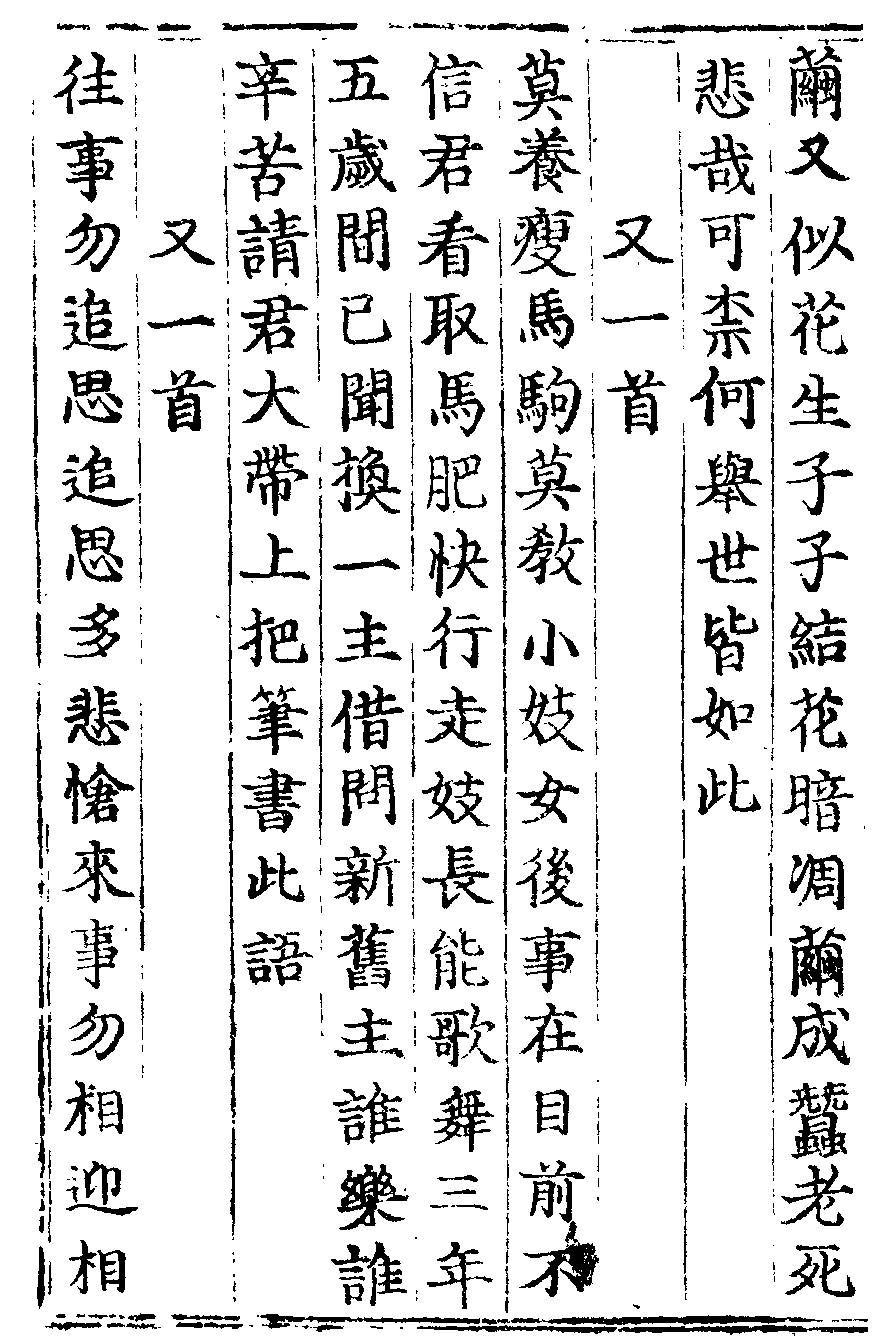 繭又似花生子子結花暗凋繭成蠶老死
悲哉可柰何舉世皆如此
又一首
莫養瘦馬駒莫敎小妓女後事在目前不
信君看取馬肥快行走妓長能歌舞三年
五歲間已聞換一主借問新舊主誰樂誰
辛苦請君大帶上把筆書此語
又一首
往事勿追思追思多悲愴來事勿相迎相